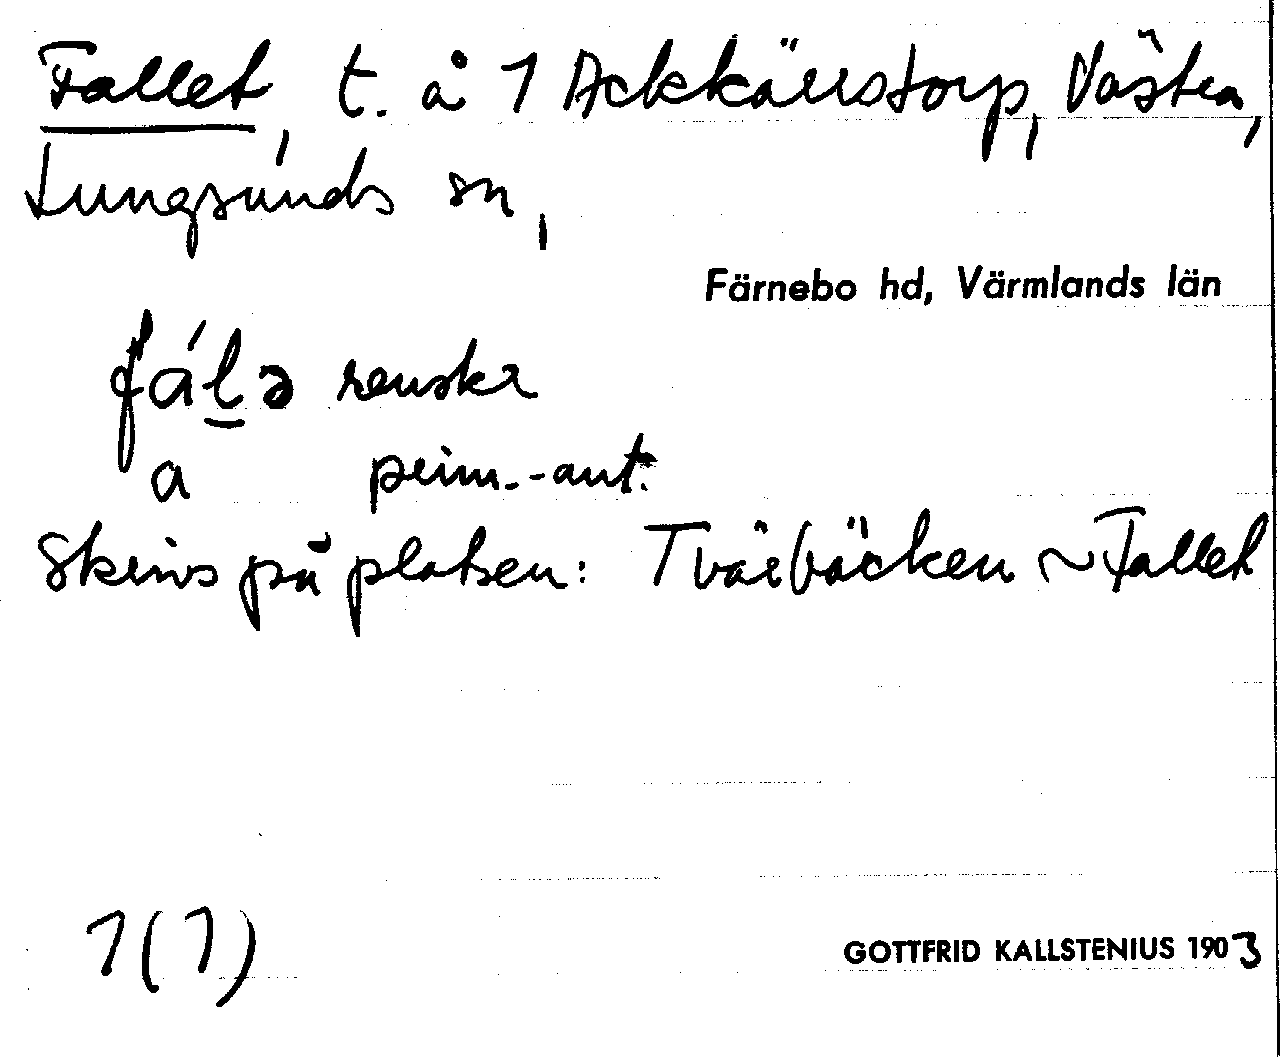 Fallet, t. å 1 Ackkärrstorp, Västra,
Lungsunds sn,
Färnebo hd, Värmlands län
fálə renskr
a prim.-ant.
Skrivs på platsen: Tvärbäcken ~ Fallet
1(1)
GOTTFRID KALLSTENIUS 1903